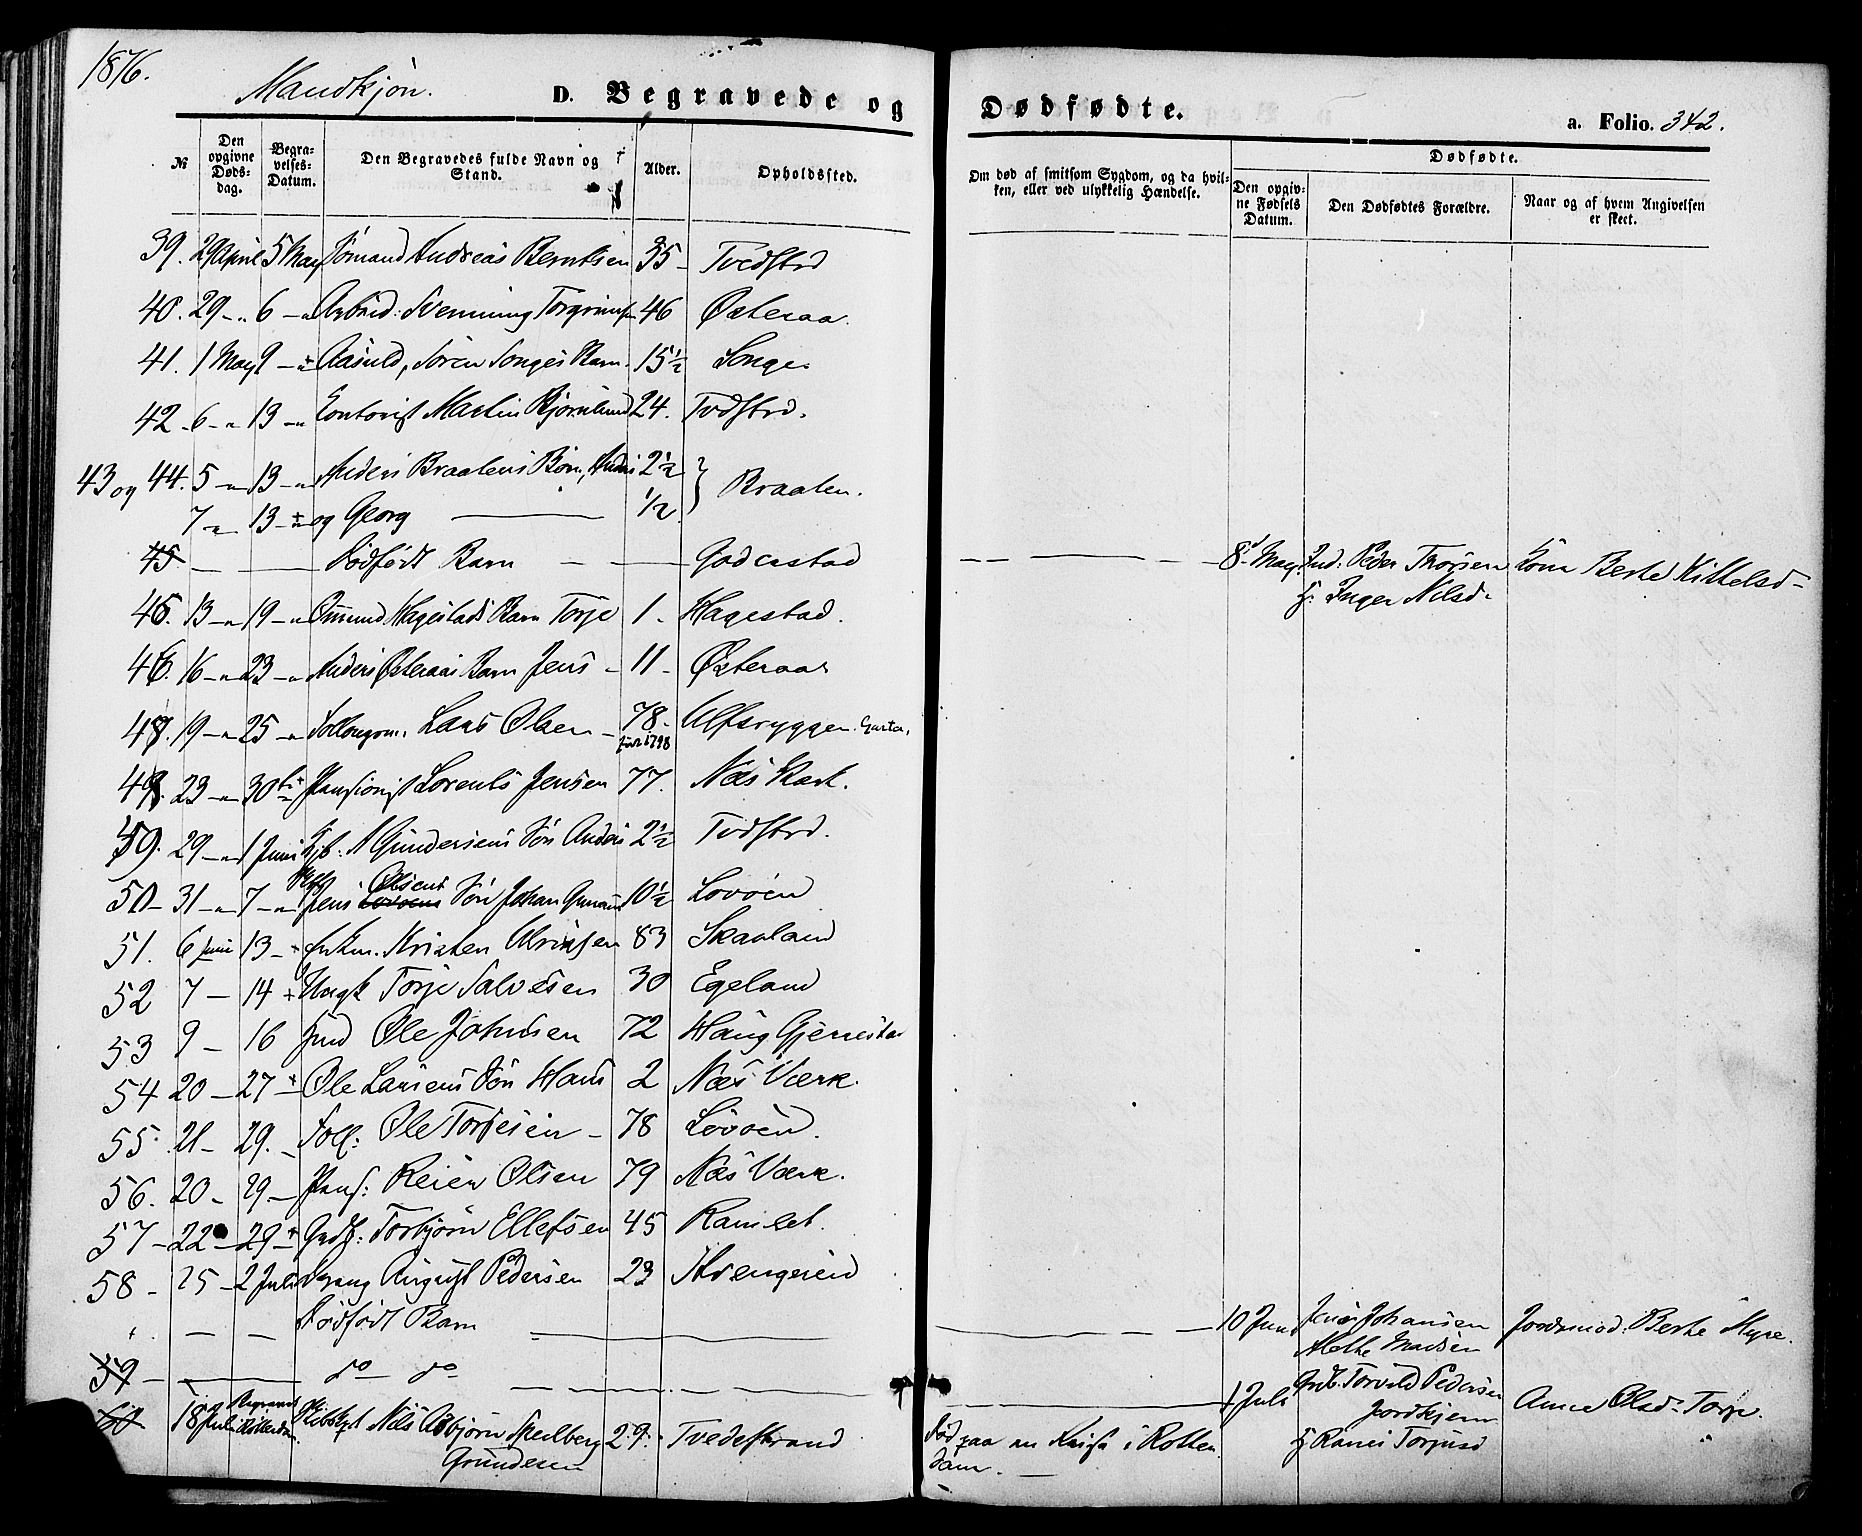 1876.
Mandkjøn.
D. Begravede og Dødfødte.
a. Folio. 342.
№
Den opgivne Døds-dag.
Begra-velses-Datum.
Den Begravedes fulde Navn og Stand.
Alder.
Opholdssted.
Om død af smitsom Sygdom, og da hvil-ken, eller ved ulykkelig Hændelse.
Dødfødte.
Den opgiv-ne Fødsels Datum.
Den Dødfødtes Forældre.
Naar og af hvem Angivelsen er skeet.
39. 29 April 5 May Sømand Andreas Berntsen 35 - Tvedstrd
40. 29 - " 6 - " Arbeid: Svenning Torgrims 46 Østeraa.
41. 1 May 9 - " Aasuld, Søren Songes Barn. 15½ Songe.
42 - 6 - " 13 - " Contorist Martin Bjørnlund 24. Tvdstrd.
43 og 44. 5 - " 13 - " Anders Braatens Børn, Anders 2½ } Braaten.
7 - " 13 - " og Georg — ½
45 — — Dødfødt Barn — — Goderstad — — 8 May Ind: Peder Thorsen Kone Berte Kittelsd -
H: Inger Nilsd.
45. 13 - " 19 - " Omund Hagestads Barn Torje 1. Hagestad.
46. 16 - " 23 - " Anders Østeraas Barn Jens - 11 - Østeraas
47. 19 - " 25 - " Lars Olsen - 78. Ulfsryggen.
født 1798
48. 23 - " 30 - Pensionist Lorents Jensen 77. Næs Værk.
49. 29 - " 1 Juni Kjb: A Gundersens Søn Anders 2½ Tvdstrd.
50 - 31 - " 7 - " Jens Olsens Søn Johan 10½ Lovøen
51. 6 Juni 13 - Kristen 83 Skaaland
52 7 - 14 + Ungk Torje Salvesen 30 Egeland
53 9 - 16 Ind Ole Johnsen 72 Haug Gjerrestad
54 20 - 27 + Ole Larsens Søn Hans 2 Næs Værk.
55. 21 - 29. - Foll: Ole Torjesen - 78 Lövöen.
56. 20 - 29. - Pens: Reier Olsen 79 Næs Værk.
57 - 22 - 29 - + Gads: Torbjørn Ellefsen 45 Ramlet.
58 - 25 - 2 Juli August Pedersen 23 Hvengereid
" — — Dødfødt Barn — — 10 Juni Johansen Jordmod: Berte Myre.
Alethe Madsen
59 - — do do — — 1 Juli Gub. Torvild Pedersen Anne Olsd. Torp.
Jordkjenn
H Ranei Torjusd "
60 18 Juli Begravet i Rotterdam Skibskpt Nils Asbjørn Skeelberg 29. Tvedestrand Død paa en Reise i Rotter
Gundesen dam. —